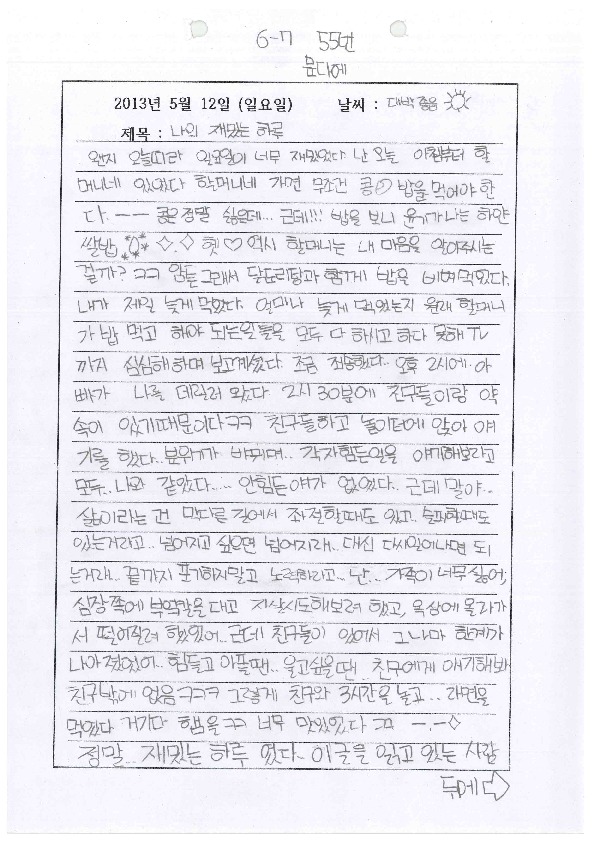 6-7 55번
문다예
2013년 5월 12일 (일요일) 날씨 : 대박 좋음
제목 : 나의 재밌는 하루
왠지 오늘따라 일요일이 너무 재밌었다 난 오늘 아침부터 할
머니네 있었다 할머니네 가면 무조건 콩 밥을 먹어야 한
다 ㅡㅡ 콩은 정말 싫은데... 근데!!! 밥을 보니 윤기가나는 하얀
쌀밥 헷♡ 역시 할머니는 내 마음을 알아주시는
걸까? ㅋㅋ 암튼 그래서 닭도리탕과 함께 밥을 비벼먹었다.
내가 제일 늦게먹었다. 얼마나 늦게 먹었는지 원래 할머니
가 밥 먹고 해야 되는일들을 모두 다 하시고 하다 못해 TV
까지 심심해하며 보고계셨다. 조금 죄송했다.. 오후 2시에 아
빠가 나를 데릴러 왔다. 2시 30분에 친구들이랑 약
속이 있기때문이다ㅋㅋ 친구들하고 놀이터에 앉아 얘
기를 했다.. 분위기가 바뀌며.. 각자힘든일을 얘기해보라고
모두.. 나와 같았다..... 안힘든얘가 없었다.. 근데 말야..
삶이라는 건 막다른 길에서 좌절할때도 있고.. 슬퍼할때도
있는거라고.. 넘어지고 싶으면 넘어지래.. 대신 다시일어나면 되
는거래.. 끝까지 포기하지말고 노력하라고.. 난.. 가족이 너무 싫어,
심장쪽에 부엌칼을 대고 자살시도해보려 했고, 옥상에 올라가
서 떨어질려 했었어.. 근데 친구들이 있어서 그나마 한계가
나아졌었어.. 힘들고 아플땐.. 울고싶을땐.. 친구에게 얘기해봐
친구밖에 없음ㅋㅋㅋ 그렇게 친구와 3시간을 놀고.. 라면을
먹었다 거기다 햄을ㅋㅋ 너무 맛있었다 ㅋㅋ ㅡ.ㅡ
정말.. 재밌는 하루 였다~ 이글을 읽고 있는 사람
뒤에